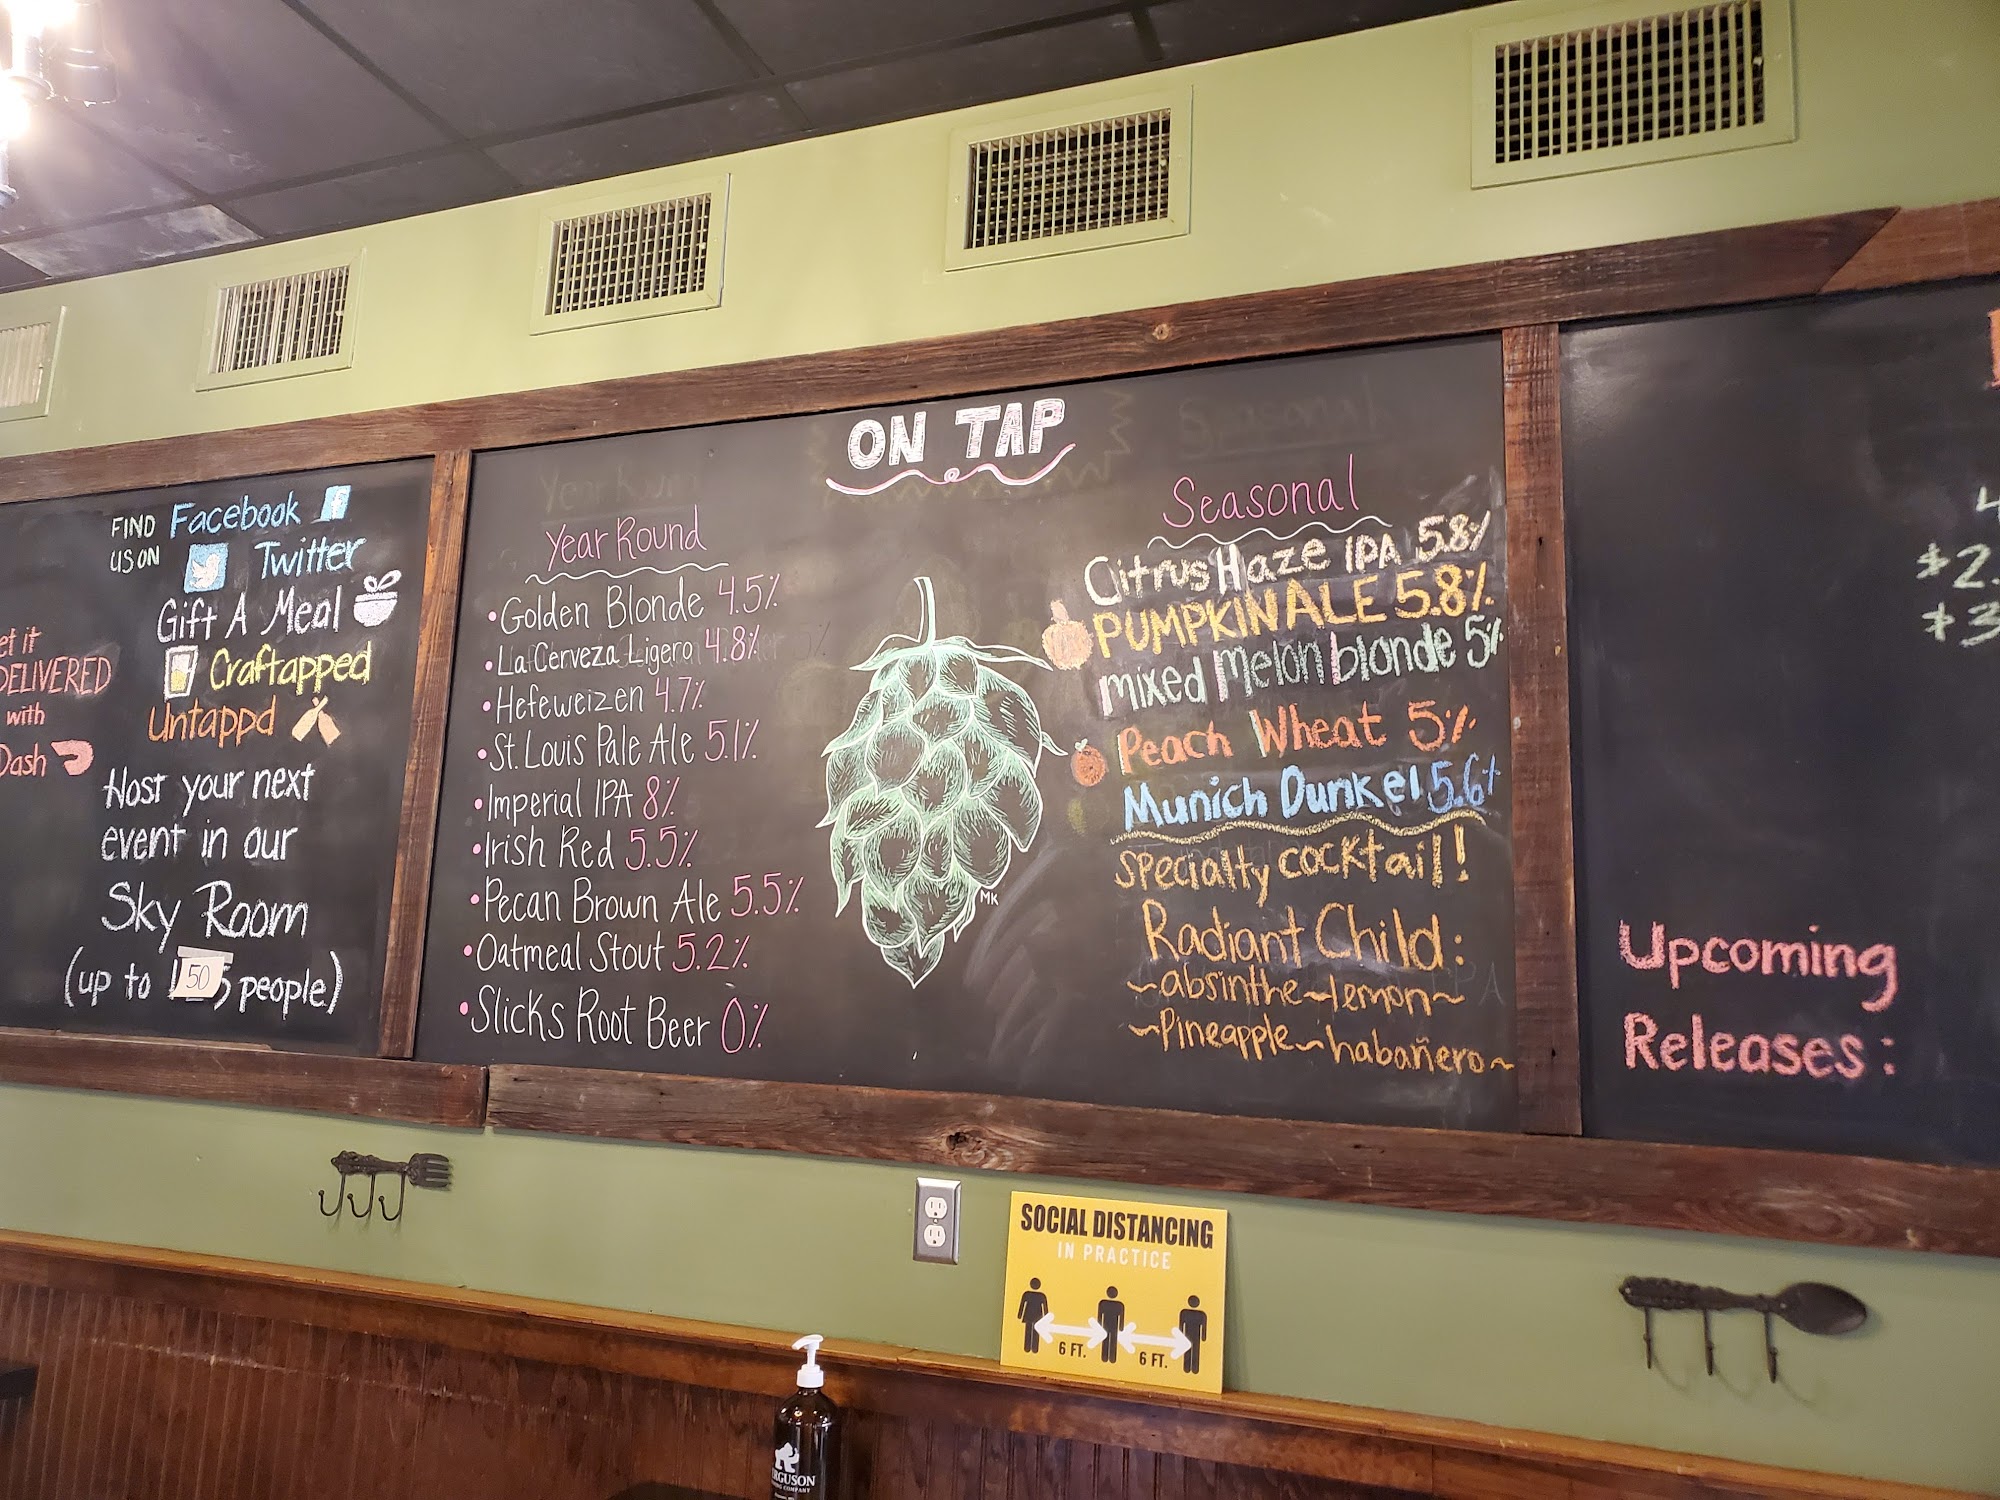 et it
DELIVERED
with
Dash
FIND
US ON
Facebook
Twitter
Gift A Meal
Craftapped
Untappd
Host your next
event in our
Sky Room
(up to 50 people)
ON TAP
Year Round
•Golden Blonde 4.5%
•La Cerveza Ligera 4.8%
•Hefeweizen 4.7%
•St. Louis Pale Ale 5.1%
•Imperial IPA 8%
•Irish Red 5.5%
•Pecan Brown Ale 5.5%
•Oatmeal Stout 5.2%
•Slicks Root Beer 0%
MK
Seasonal
Citrus Haze IPA 5.8%
PUMPKIN ALE 5.8%
mixed melon blonde 5%
Peach Wheat 5%
Munich Dunkel 5.6%
specialty cocktail!
Radiant Child:
~absinthe~lemon~
~Pineapple~habañero~
4
$2.
$3
Upcoming
Releases:
SOCIAL DISTANCING
IN PRACTICE
6 FT. 6 FT.
RGUSON